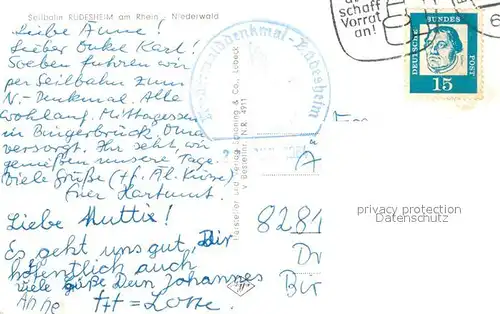 Seilbahn RÜDESHEIM am Rhein - Niederwald
Liebe Anne!
Lieber Onkel Karl!
Soeben fuhren wir
per Seilbahn zum
N.-Denkmal. Alle
wohlauf. Mittagessen
in Bingerbrück. Oma
versorgt. Ihr seht, wir
genießen unsere Tage.
Viele Grüße
Euer Hartmut.
Liebe Mutti!
Es geht uns gut, Dir
hoffentlich auch
viele Grüße Dein Johannes
Anne = Lotte.
Niederwalddenkmal - Rüdesheim
Hersteller und Verlag Schöning & Co., Lübeck
Bestellnr. N.R. 4911
schaff
Vorrat
an!
DEUTSCHE
BUNDES
POST
15
A
8281
privacy protection